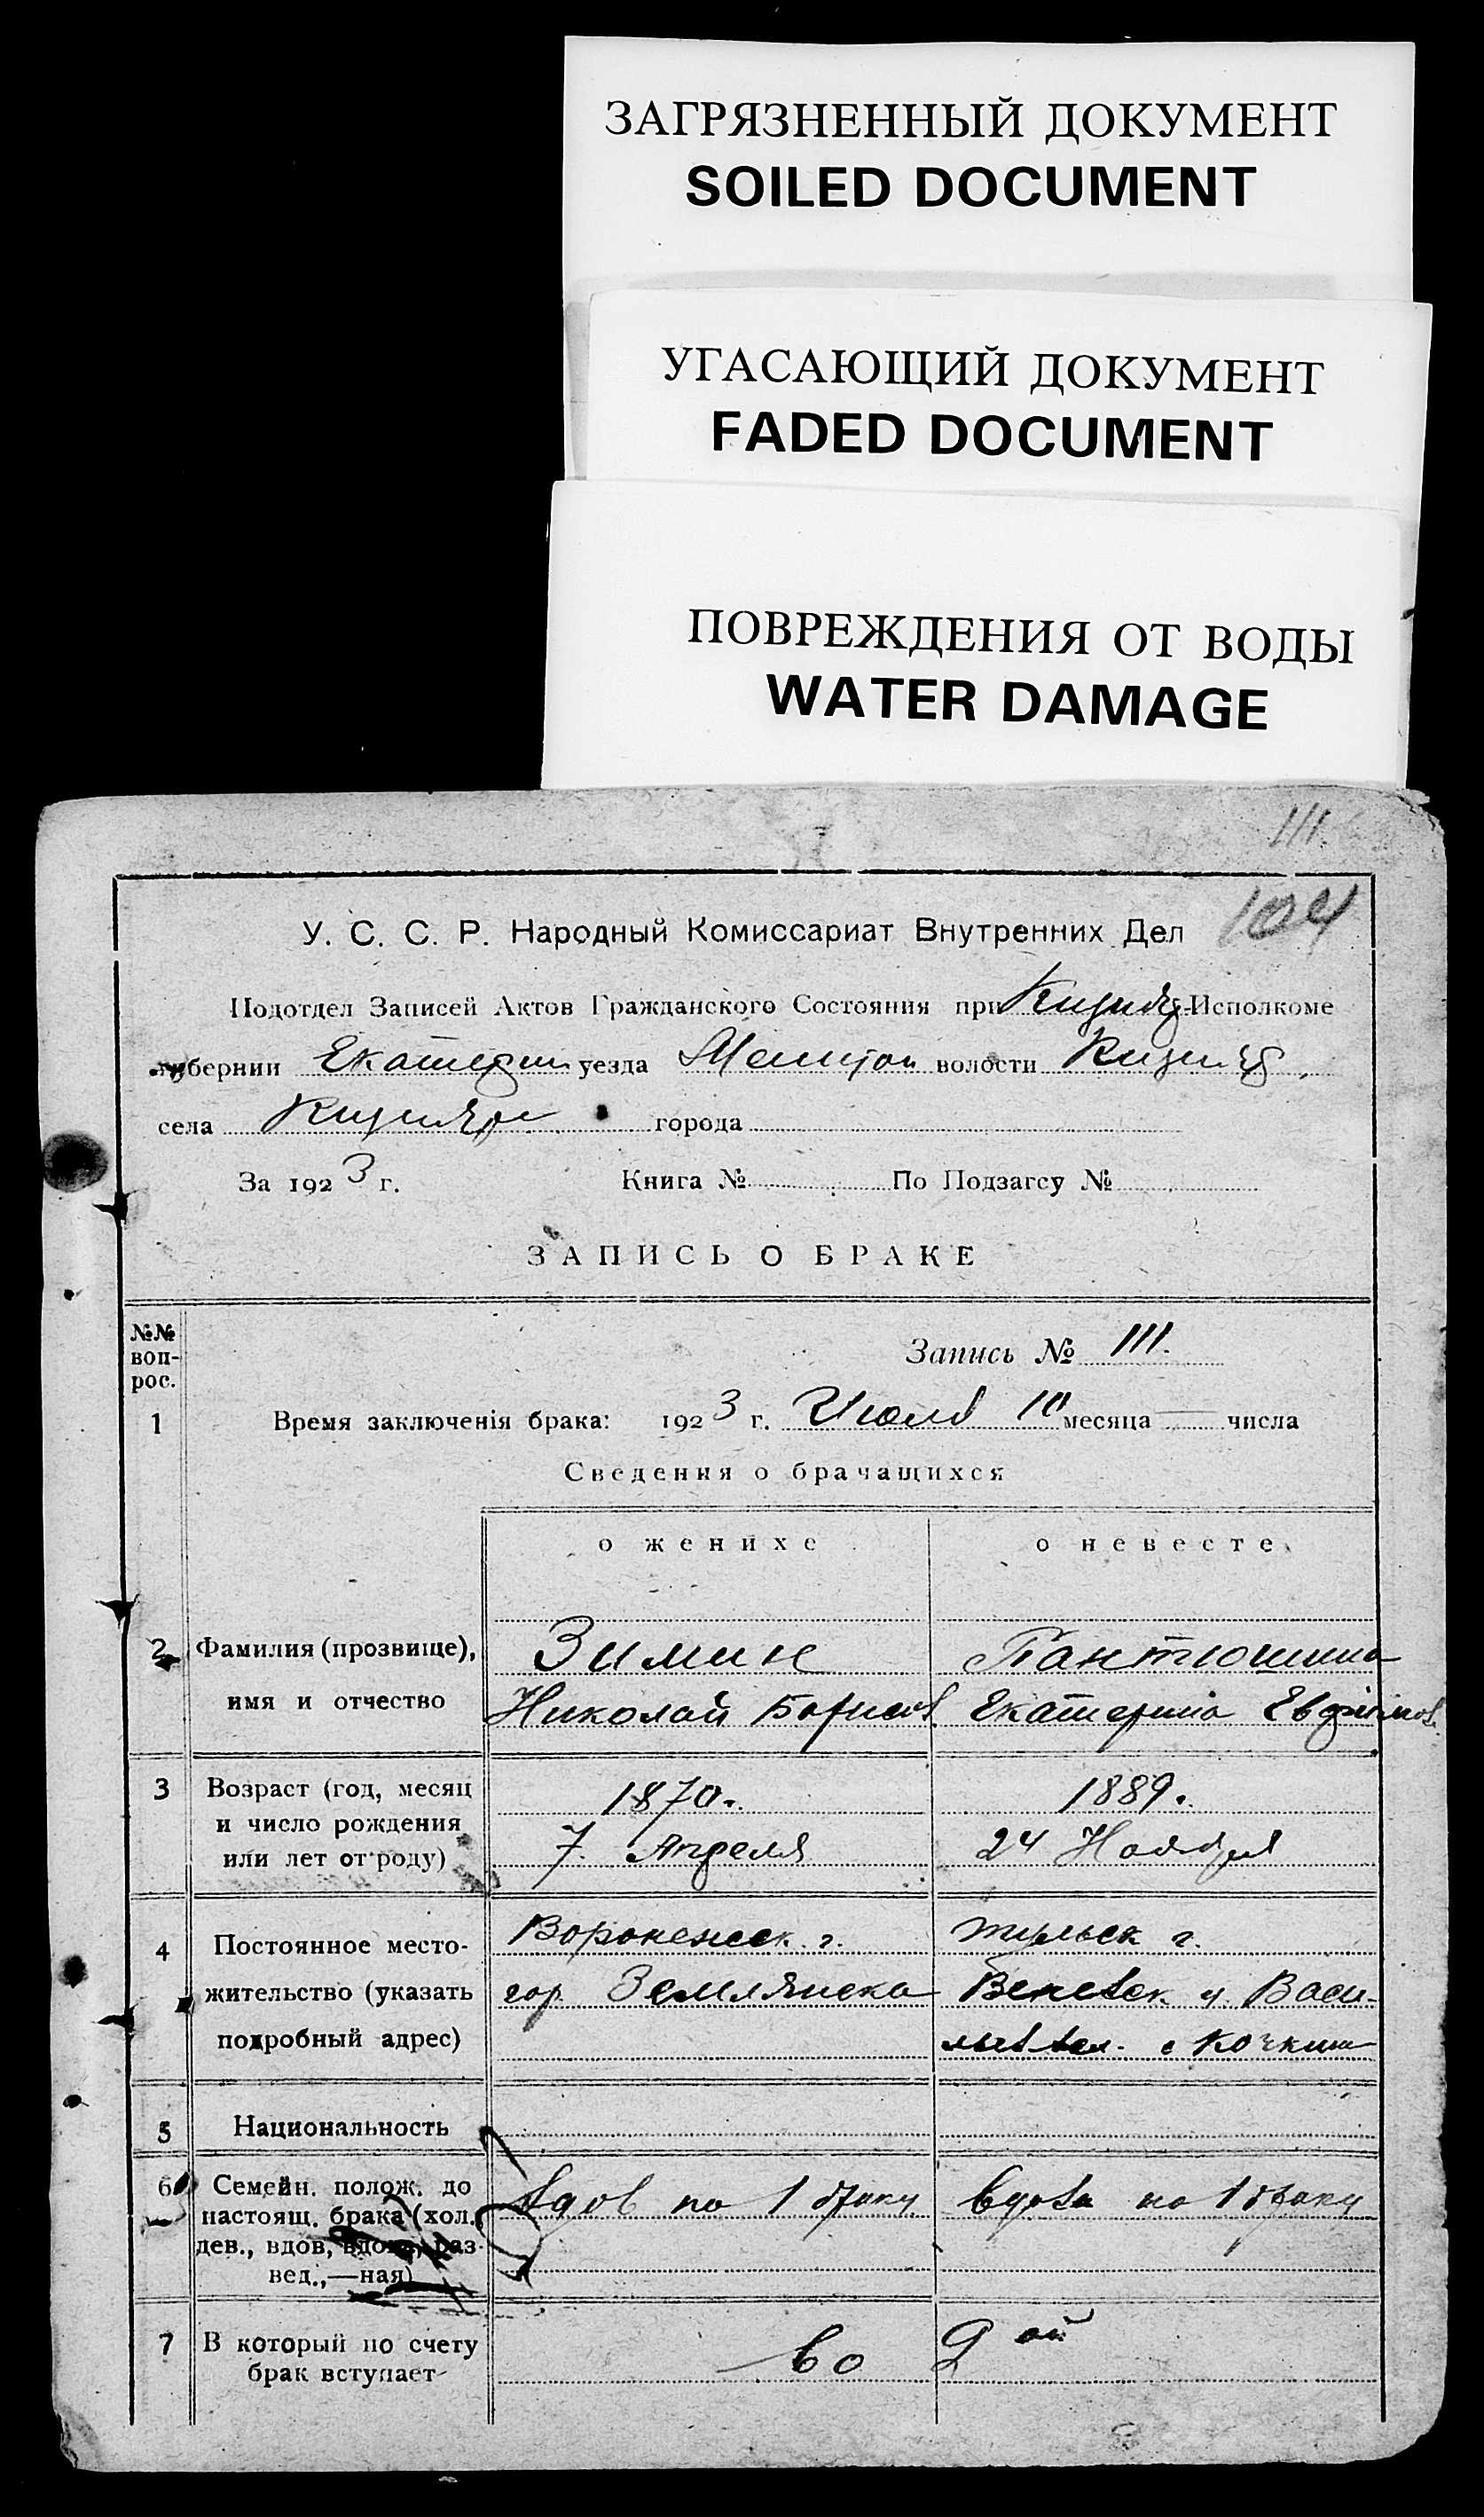 ЗАГРЯЗНЕННЫЙ ДОКУМЕНТ
SOILED DOCUMENT
УГАСАЮЩИЙ ДОКУМЕНТ
FADED DOCUMENT
ПОВРЕЖДЕНИЯ ОТ ВОДЫ
WATER DAMAGE
111.
104
У. С. С. Р. Народный Комиссариат Внутренних Дел
Подотдел Записей Актов Гражданского Состояния при Кизияр-Исполкоме
губернии Екатерин уезда Мелитоп волости Кизияр.
села Кизияр города
За 1923 г. Книга № По Подзагсу №
ЗАПИСЬ О БРАКЕ
№№ воп-рос.
Запись № 111.
1 Время заключенія брака: 1923 г. Июля 10 месяца — числа
Сведения о брачащихся
о женихе о невесте
2 Фамилия (прозвище), Зимин Пантюшина
имя и отчество Николай Борисов. Екатерина Евфимов.
3 Возраст (год, месяц 1870. 1889.
и число рождения 7. Апреля 24 Ноября
или лет от роду)
4 Постоянное место- Воронежск. г. Тульск г.
жительство (указать гор. Землянска Веневск. у. Васи-
подробный адрес) с Кочкина
5 Национальность
6 Семейн. полож. до вдов по 1 браку вдова по 1 браку
настоящ. брака (хол.,
дев., вдов, вдова, раз-
вед.,—ная)
7 В который по счету во 2 ой
брак вступает